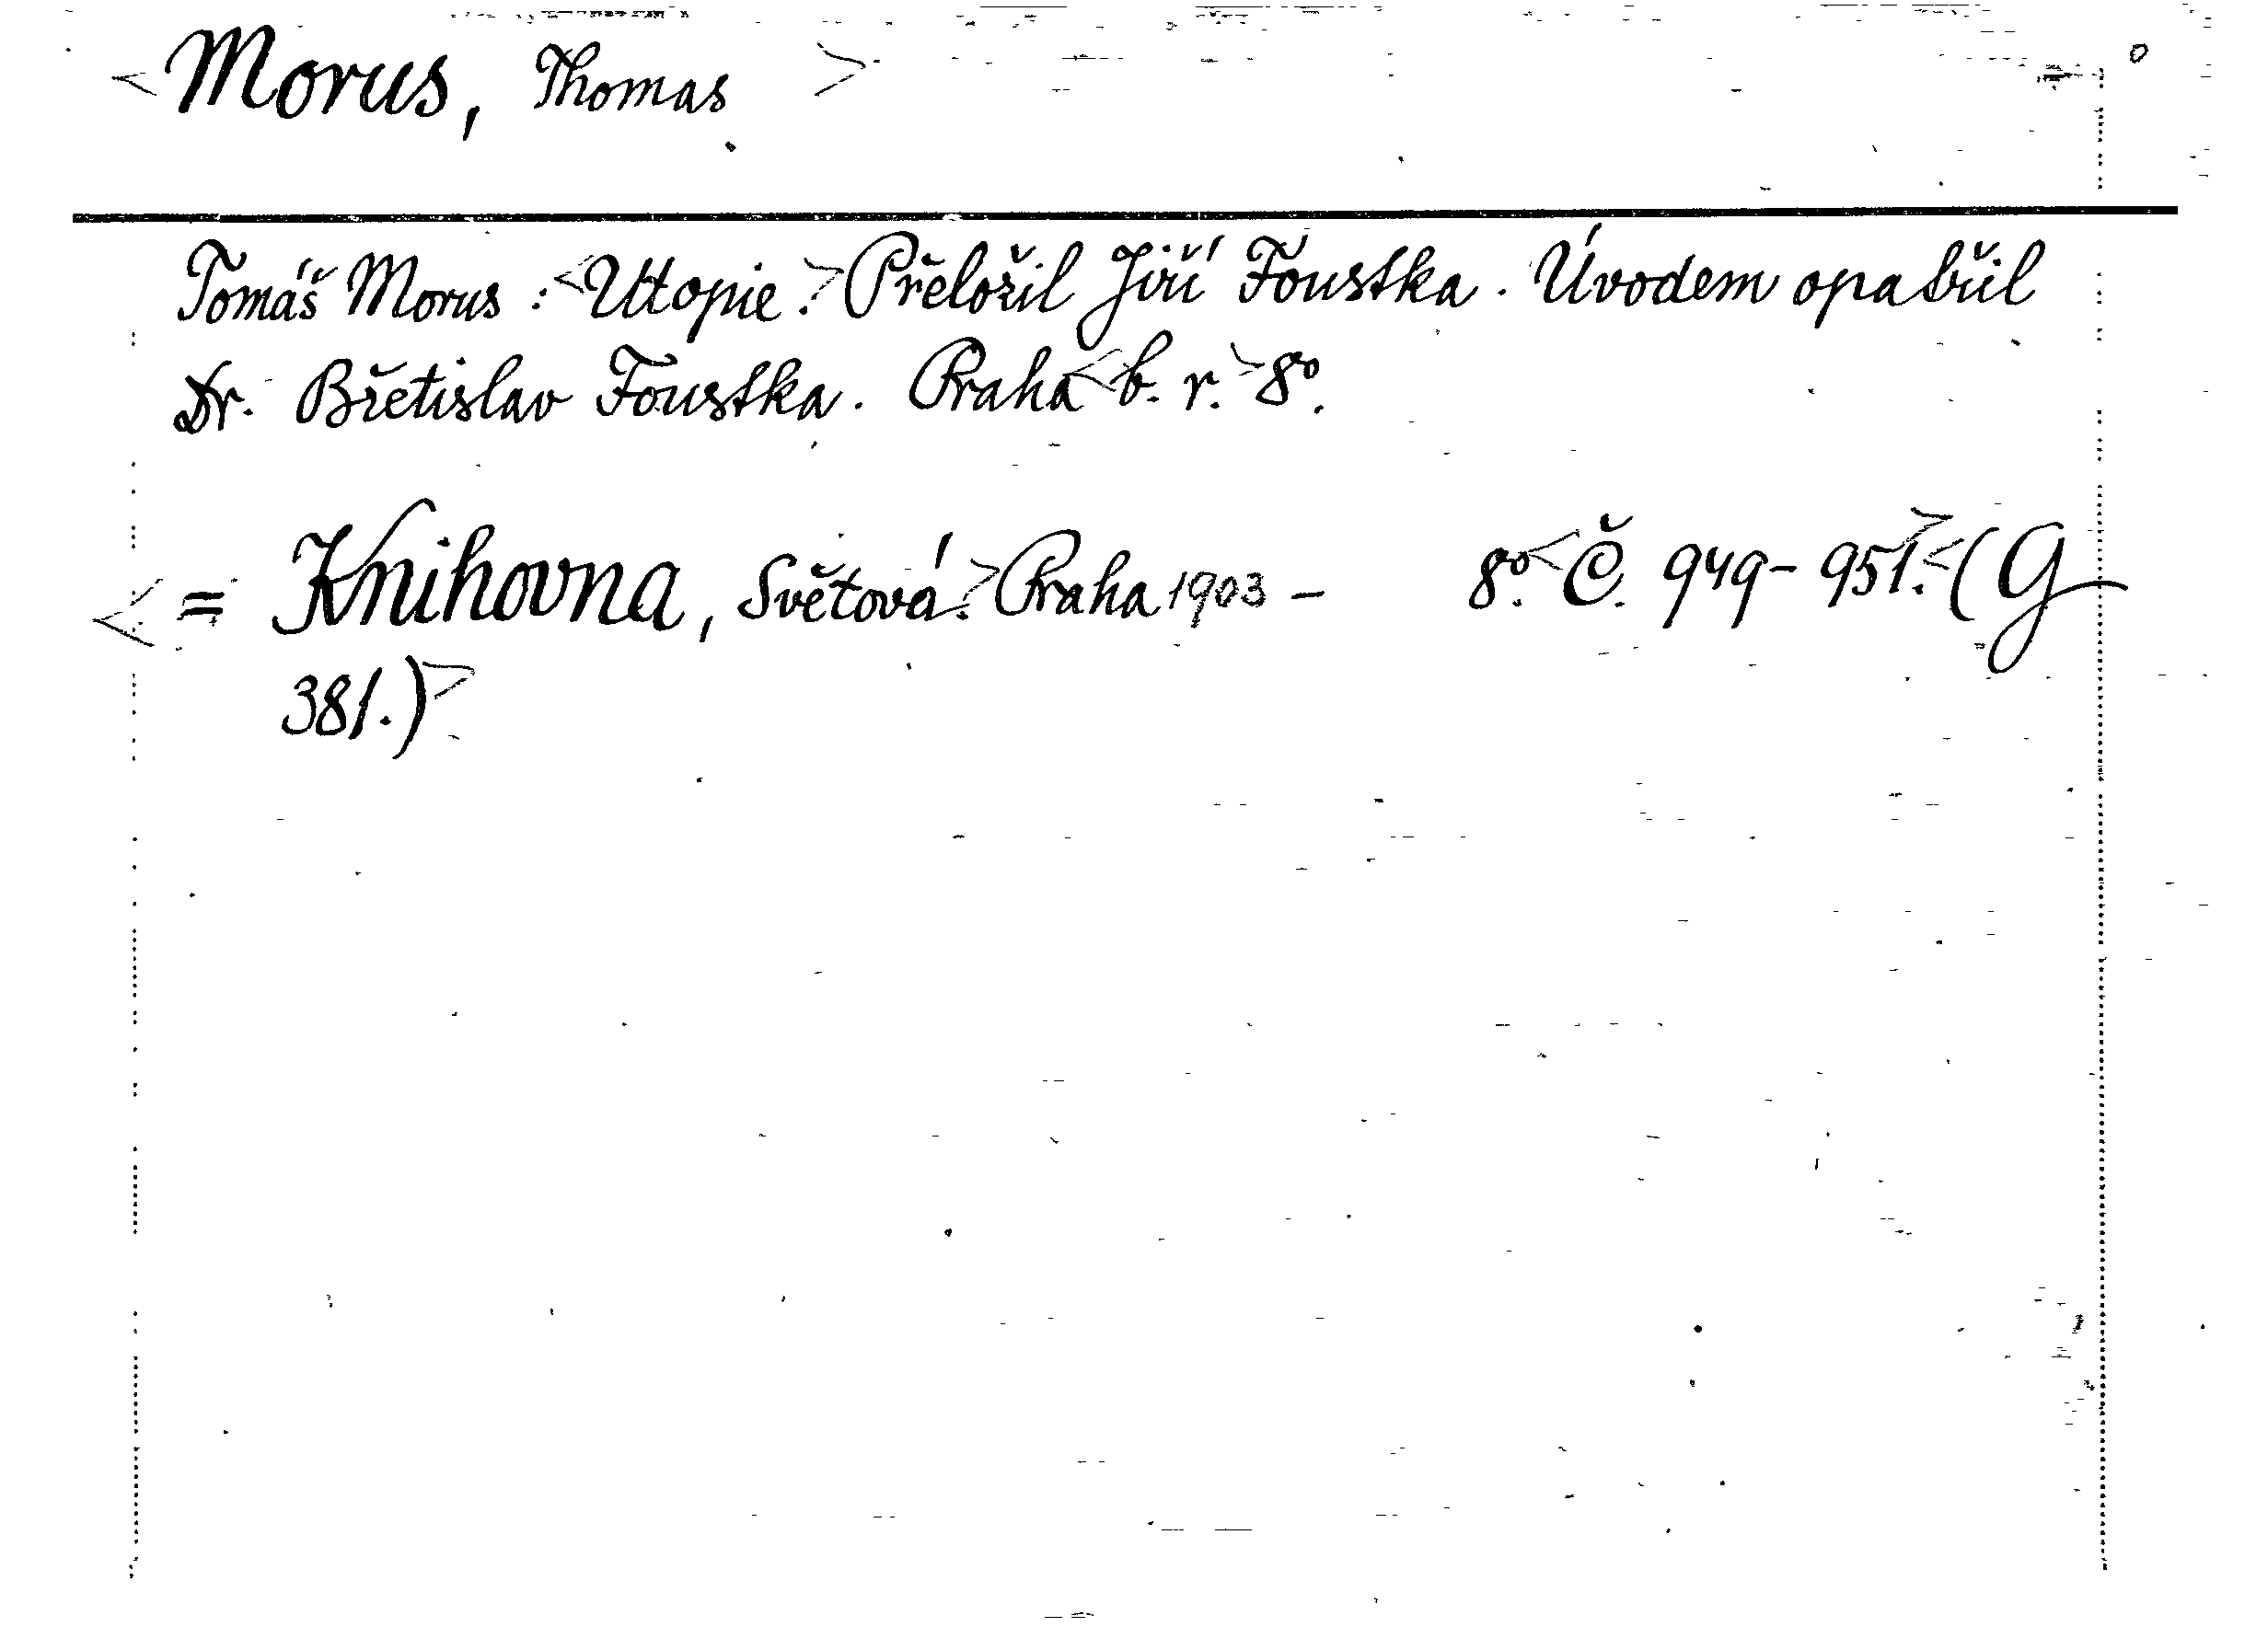 <Morus, Thomas>
Tomáš Morus: <Utopie.> Přeložil Jiří Foustka. Úvodem opatřil
Dr. Břetislav Foustka. Praha <b. r.> 8°.
<= Knihovna, Světová.> Praha 1903 - 8°. <Č. 949-951.> <(G
381.)>